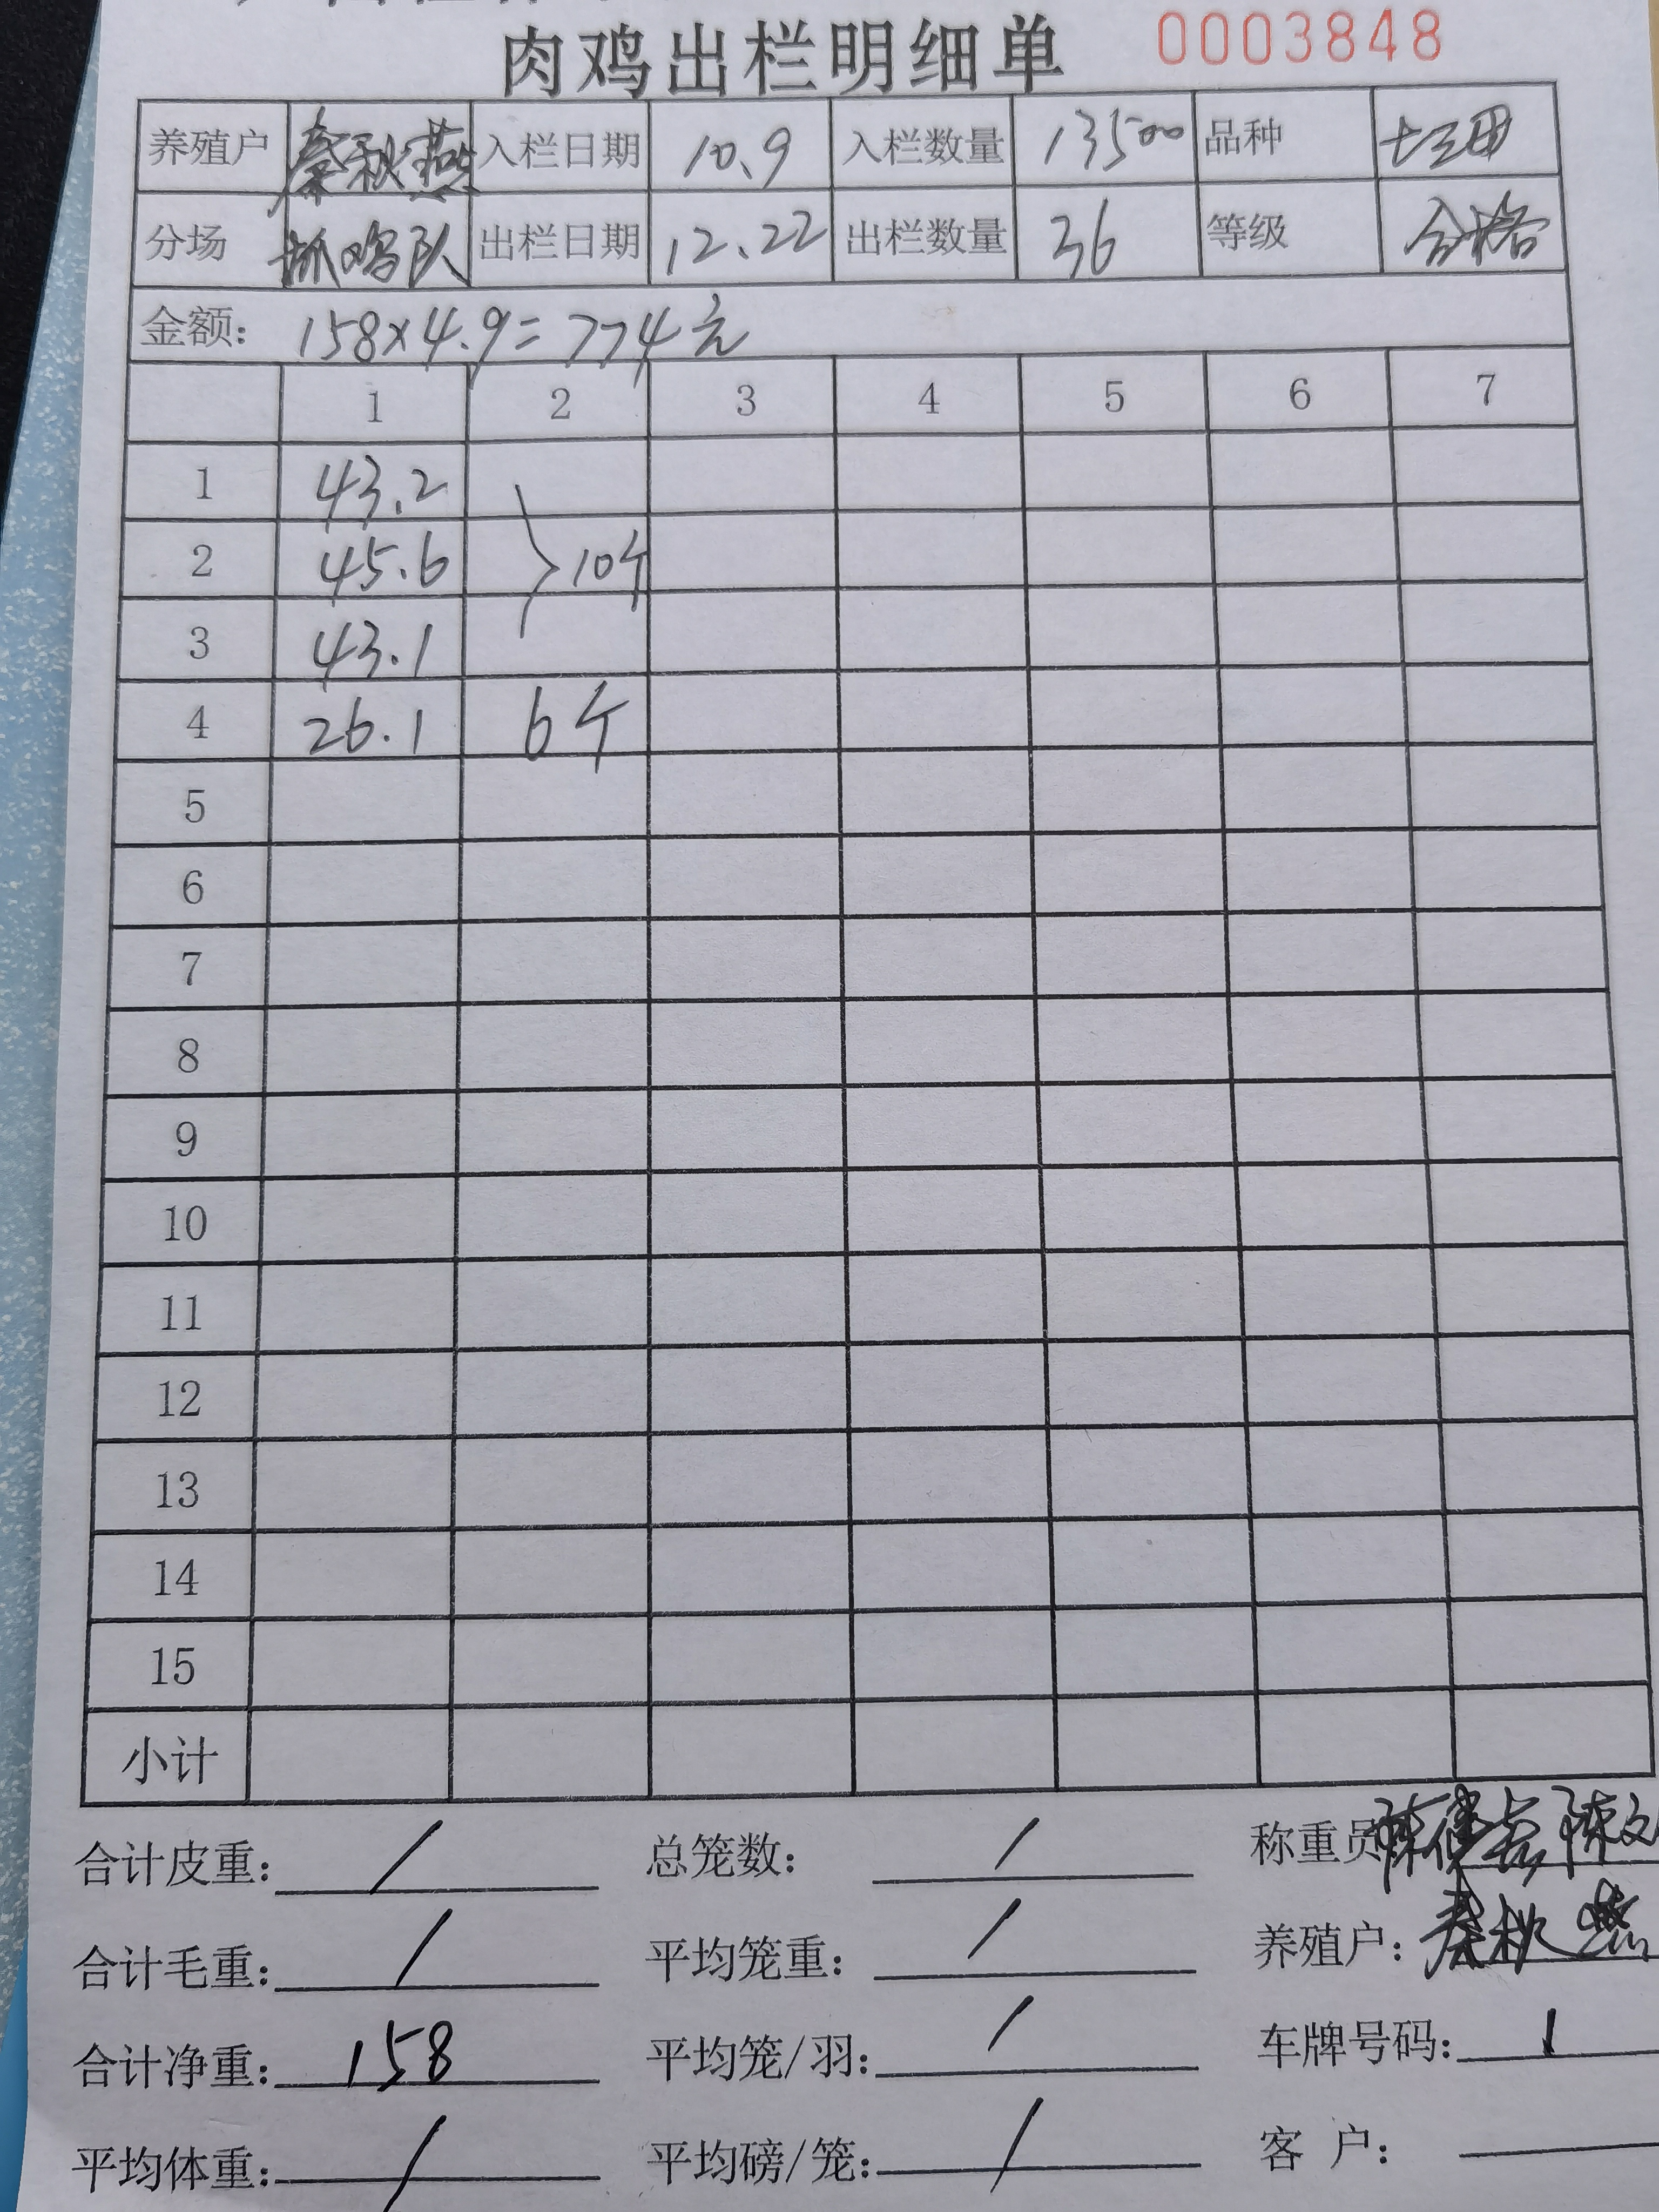 肉鸡出栏明细单 0003848
养殖户 秦秋燕 入栏日期 10.9 入栏数量 13500 品种 土三田
分场 抓鸡队 出栏日期 12.22 出栏数量 36 等级 合格
金额: 158×4.9=774元
1 2 3 4 5 6 7
1 43.2
2 45.6 10个
3 43.1
4 26.1 6个
5
6
7
8
9
10
11
12
13
14
15
小计
合计皮重: / 总笼数: / 称重员
合计毛重: / 平均笼重: / 养殖户: 秦秋燕
合计净重: 158 平均笼/羽: / 车牌号码: 1
平均体重: / 平均磅/笼: / 客 户: